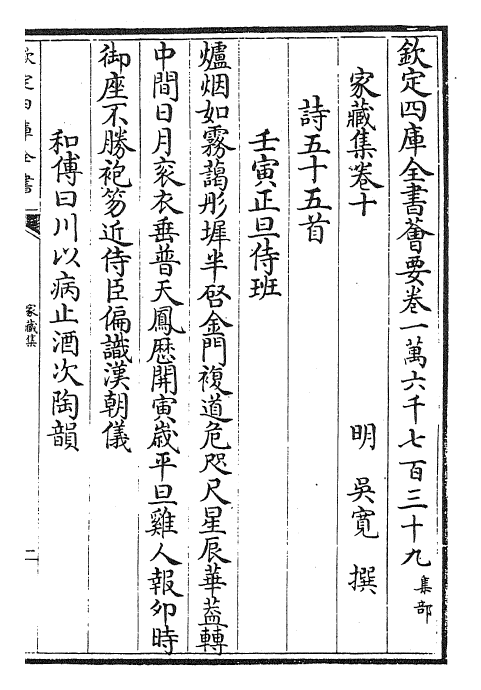 欽定四庫全書薈要卷一萬六千七百三十九集部
家藏集卷十
明 吳寬 撰
詩五十五首
壬寅正旦侍班
爐烟如霧藹彤墀半啓金門複道危咫尺星辰華葢轉
中間日月衮衣垂普天鳳厯開寅嵗平旦雞人報夘時
御座不勝袍笏近侍臣偏識漢朝儀
和傅曰川以病止酒次陶韻
欽定四庫全書
家藏集